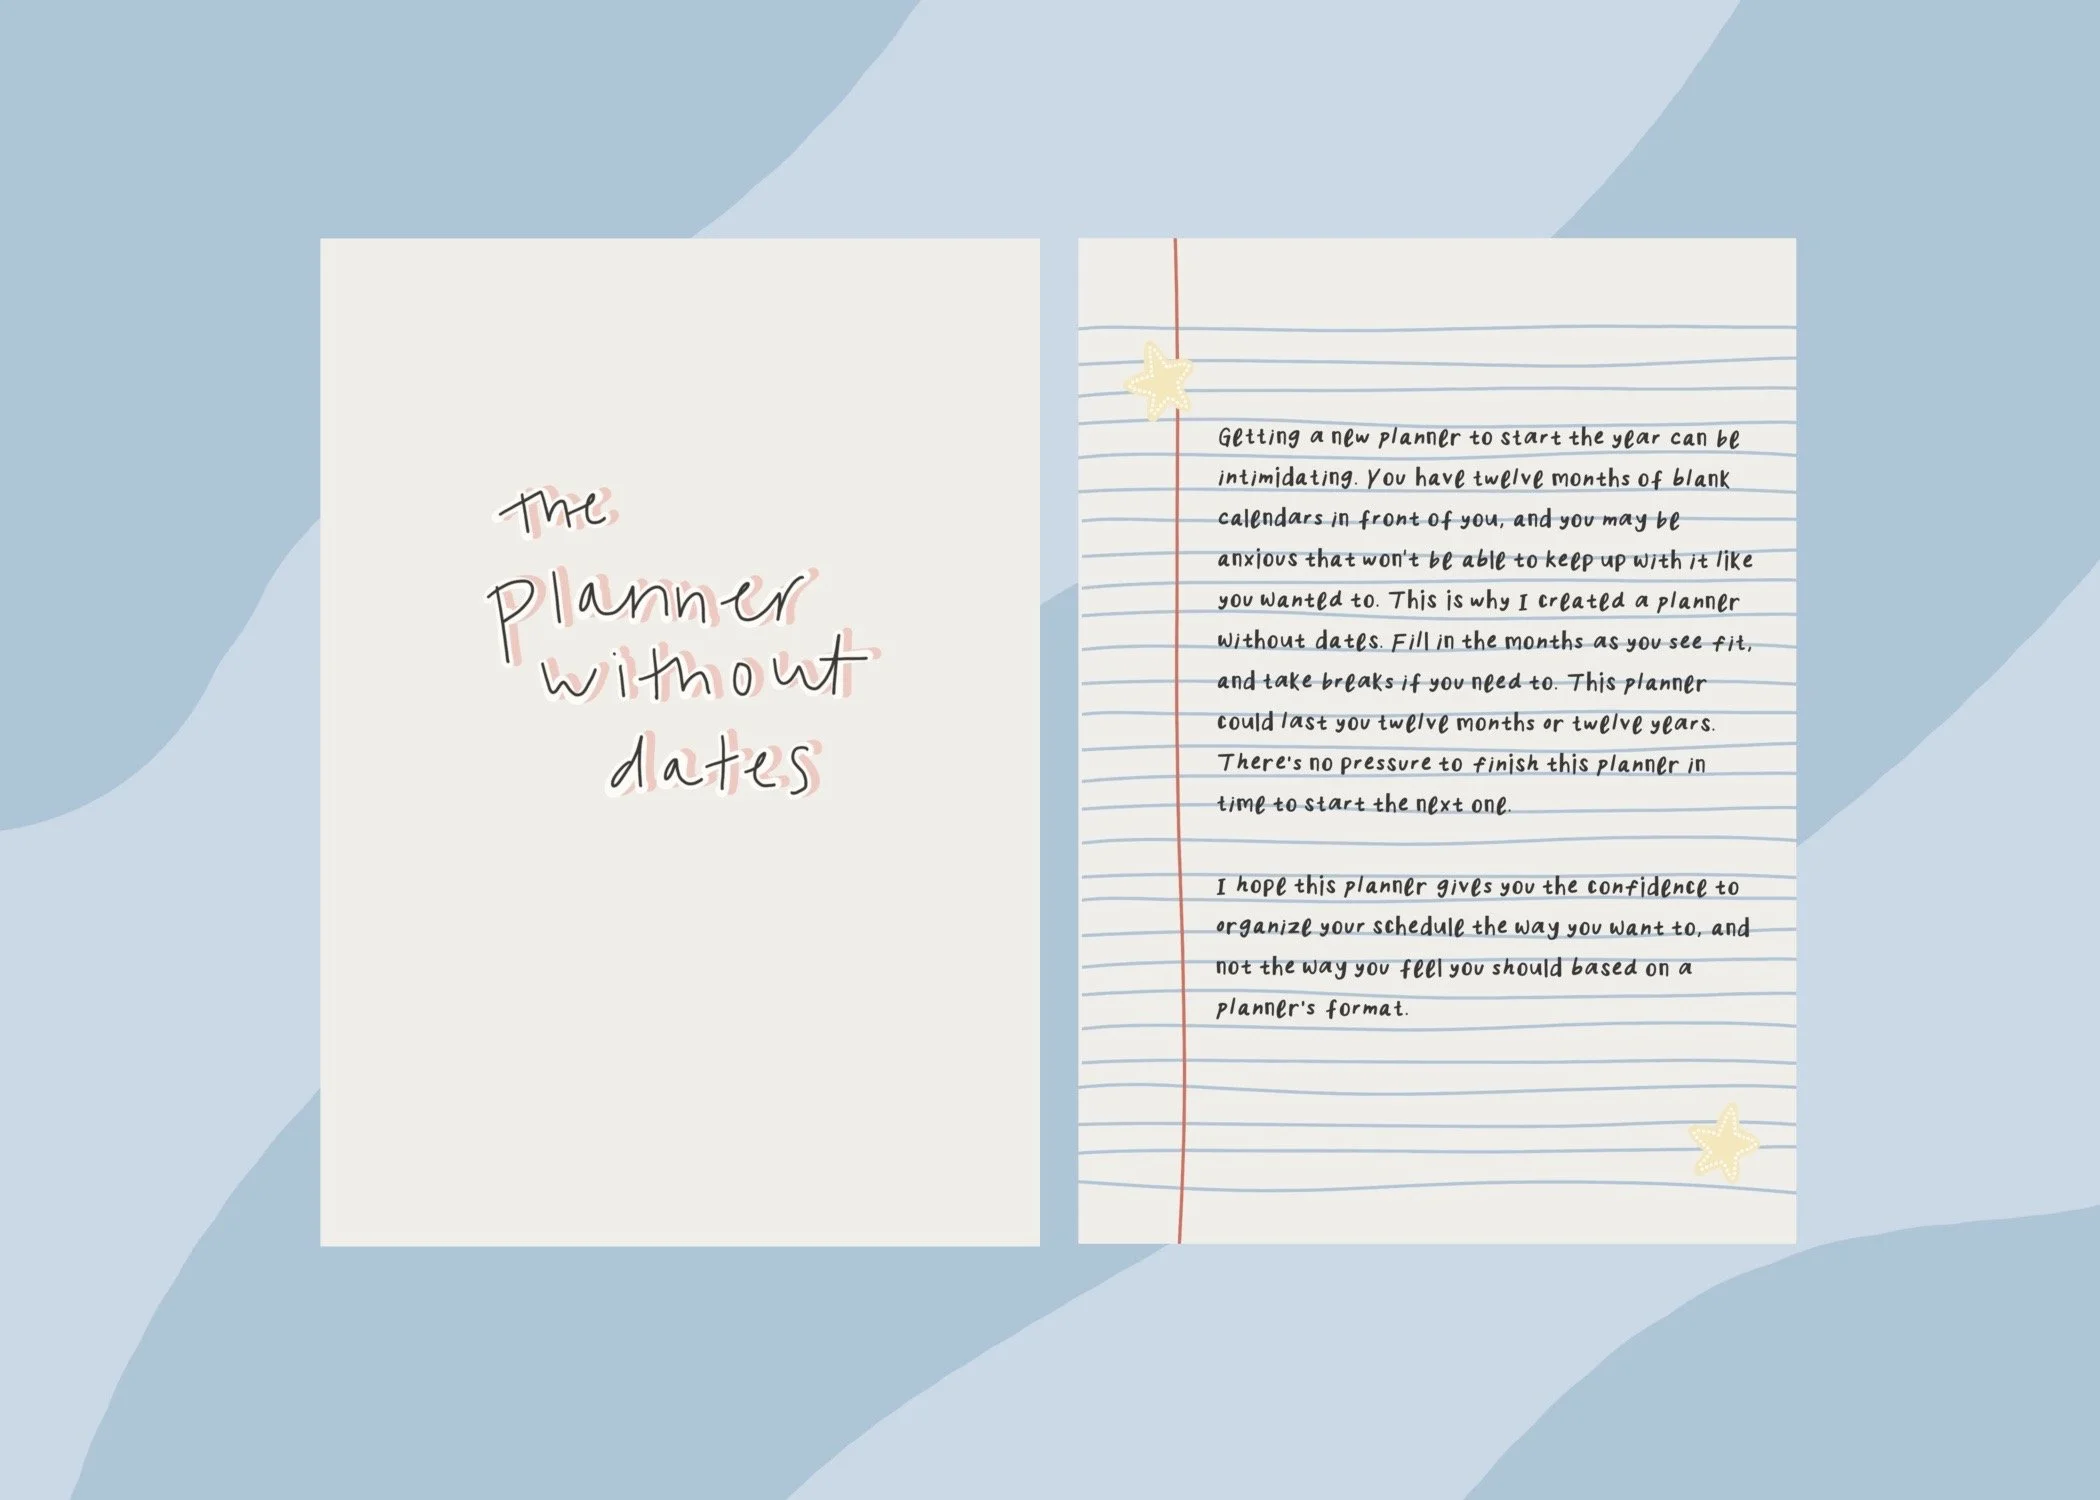 the
planner
without
dates
Getting a new planner to start the year can be
intimidating. You have twelve months of blank
calendars in front of you, and you may be
anxious that won't be able to keep up with it like
you wanted to. This is why I created a planner
without dates. Fill in the months as you see fit,
and take breaks if you need to. This planner
could last you twelve months or twelve years.
There's no pressure to finish this planner in
time to start the next one.
I hope this planner gives you the confidence to
organize your schedule the way you want to, and
not the way you feel you should based on a
planner's format.